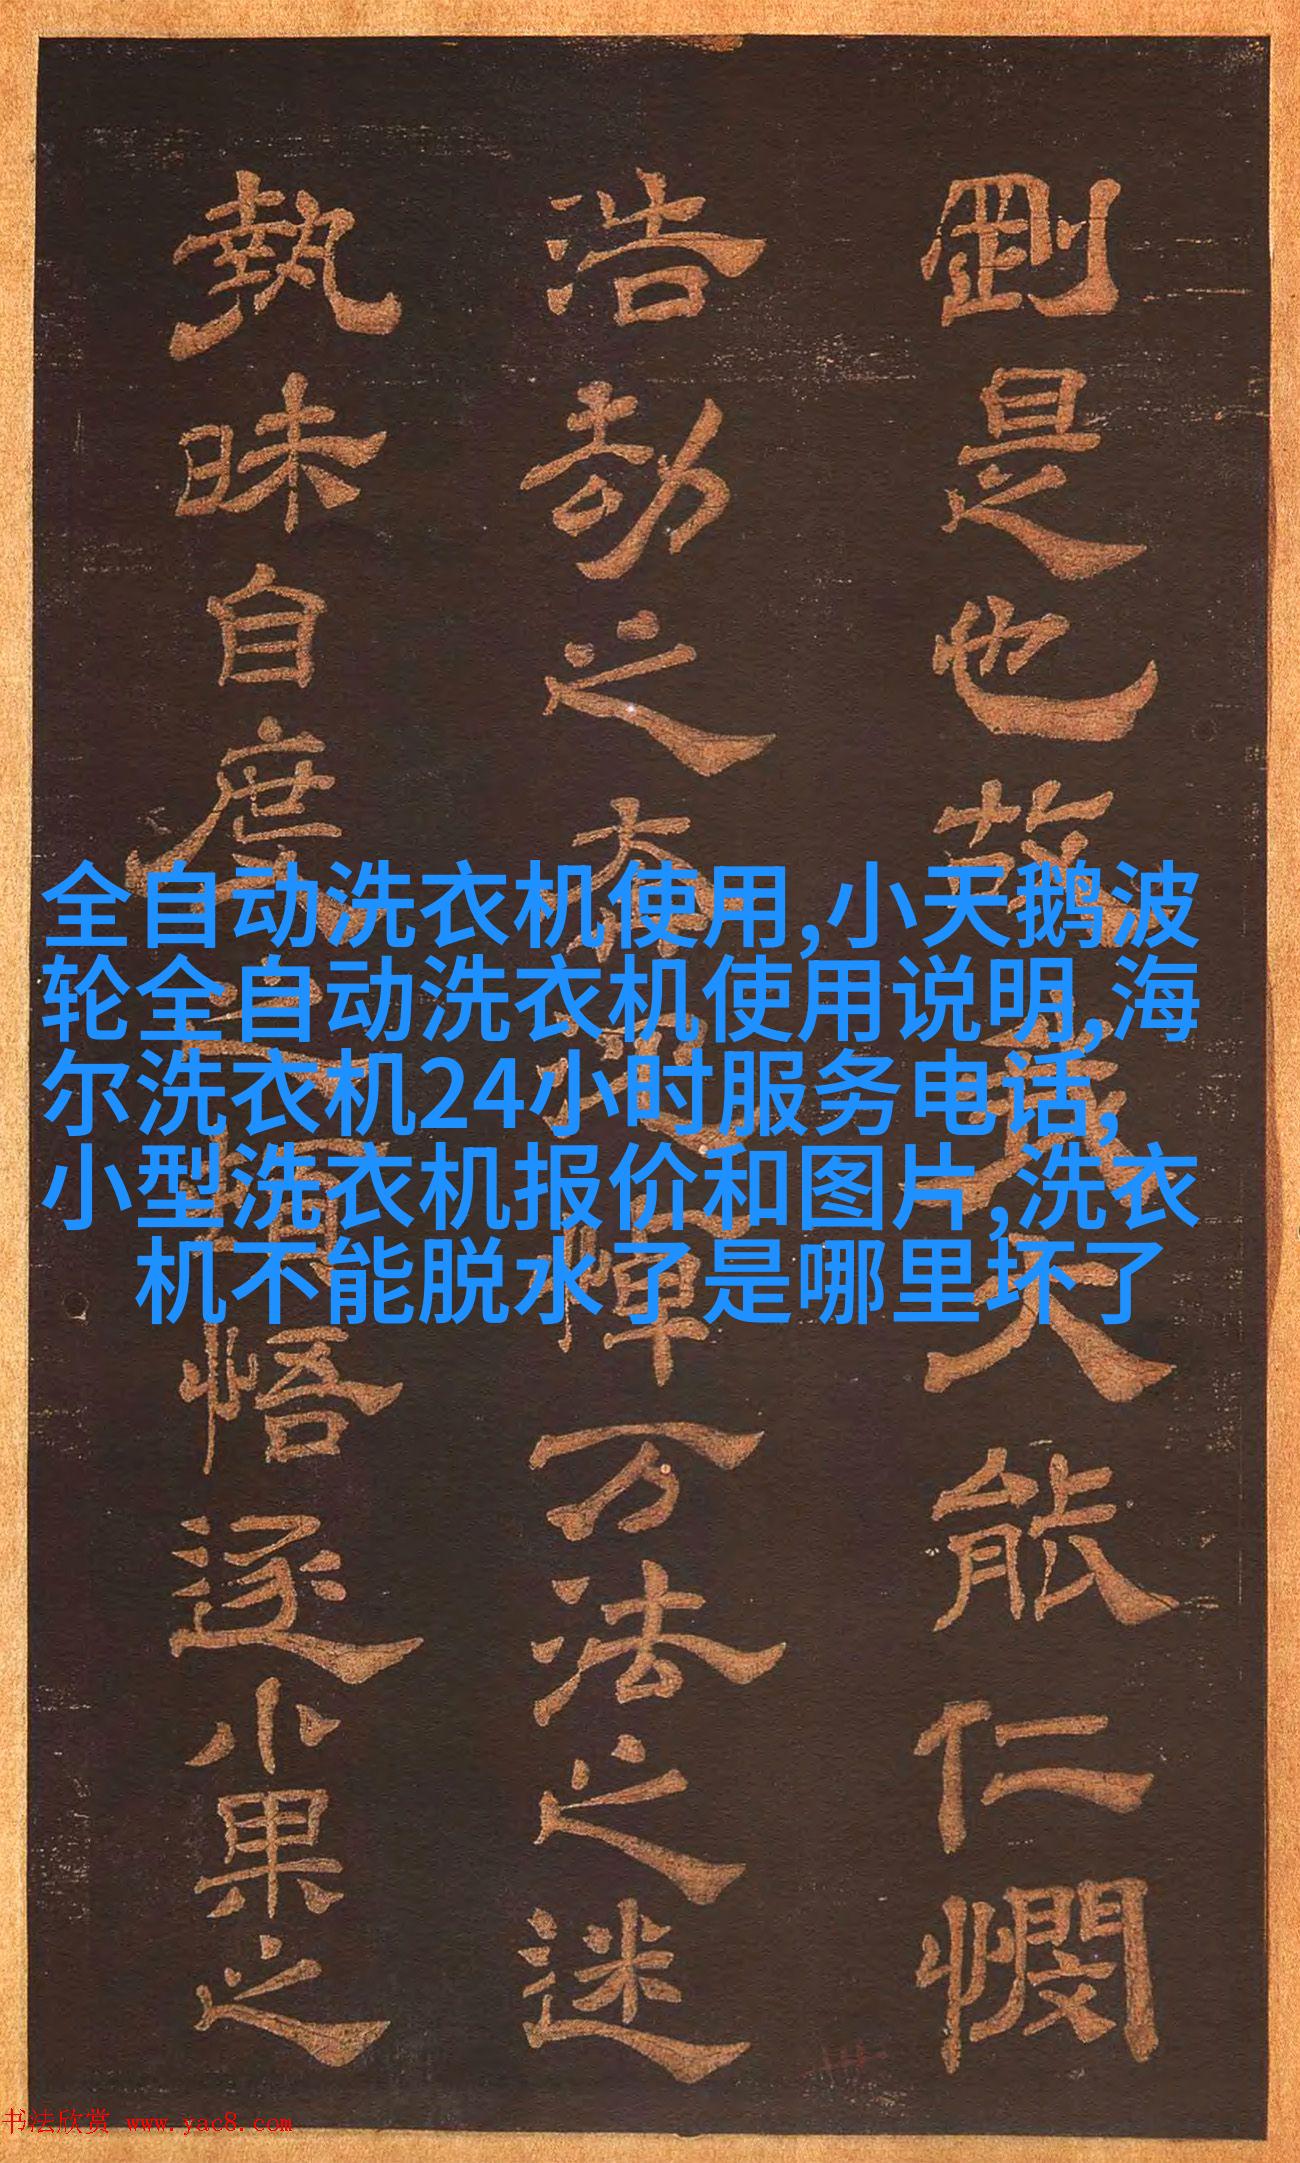 全自动洗衣机使用,小天鹅波
轮全自动洗衣机使用说明,海
尔洗衣机24小时服务电话,
小型洗衣机报价和图片,洗衣
机不能脱水了是哪里坏了
劉是也故我大能仁憫
浩劫之
萬法之迷
執昧自度
悟逐小果之
书法欣赏 www.yac8.com